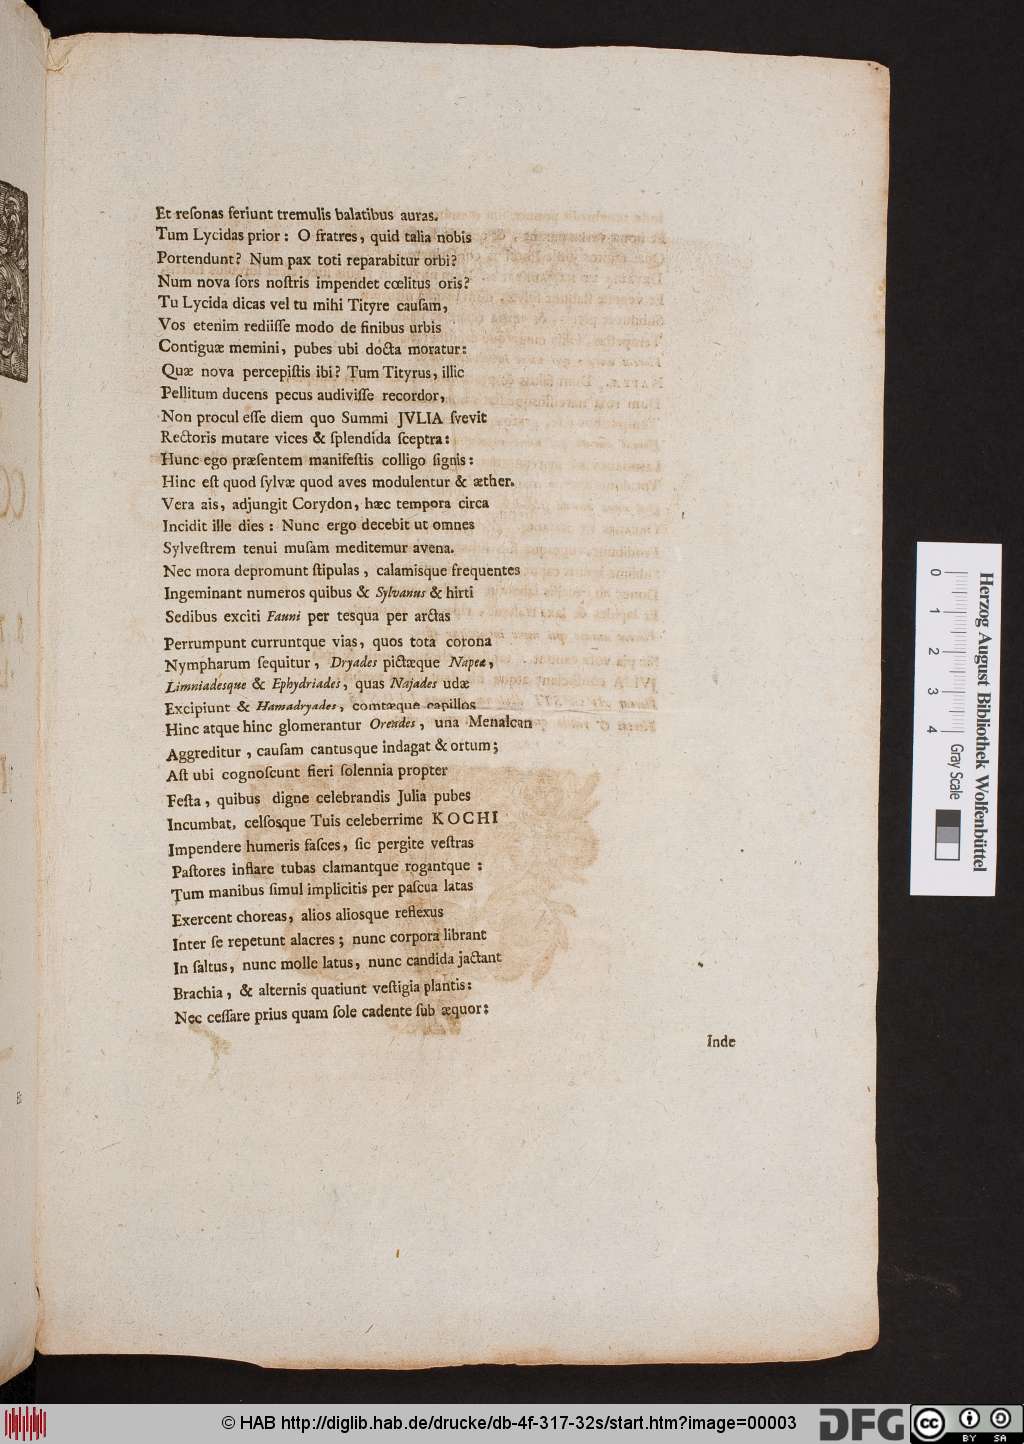 Et reſonas feriunt tremulis balatibus auras.
Tum Lycidas prior : O fratres, quid talia nobis
Portendunt? Num pax toti reparabitur orbi?
Num nova ſors noſtris impendet cœlitus oris?
Tu Lycida dicas vel tu mihi Tityre cauſam,
Vos etenim rediiſſe modo de finibus urbis
Contiguæ memini, pubes ubi docta moratur:
Quæ nova percepiſtis ibi? Tum Tityrus, illic
Pellitum ducens pecus audiviſſe recordor,
Non procul eſſe diem quo Summi JVLIA ſvevit
Rectoris mutare vices & ſplendida ſceptra:
Hunc ego præſentem manifeſtis colligo ſignis:
Hinc eſt quod ſylvæ quod aves modulentur & æther.
Vera ais, adjungit Corydon, hæc tempora circa
Incidit ille dies : Nunc ergo decebit ut omnes
Sylveſtrem tenui muſam meditemur avena.
Nec mora depromunt ſtipulas, calamisque frequentes
Ingeminant numeros quibus & Sylvanus & hirti
Sedibus exciti Fauni per tesqua per arctas
Perrumpunt curruntque vias, quos tota corona
Nympharum ſequitur, Dryades pictæque Napeæ,
Limniadesque & Ephydriades, quas Najades udæ
Excipiunt & Hamadryades, comtæque capillos
Hinc atque hinc glomerantur Oreades, una Menalcan
Aggreditur, cauſam cantusque indagat & ortum;
Aſt ubi cognoſcunt fieri ſolennia propter
Feſta, quibus digne celebrandis Julia pubes
Incumbat, celſosque Tuis celeberrime KOCHI
Impendere humeris faſces, ſic pergite veſtras
Paſtores inflare tubas clamantque rogantque :
Tum manibus ſimul implicitis per paſcua latas
Exercent choreas, alios aliosque reflexus
Inter ſe repetunt alacres ; nunc corpora librant
In ſaltus, nunc molle latus, nunc candida jactant
Brachia, & alternis quatiunt veſtigia plantis:
Nec ceſſare prius quam ſole cadente ſub æquor:
Inde
Herzog August Bibliothek Wolfenbüttel
0 1 2 3 4
Gray Scale
© HAB http://diglib.hab.de/drucke/db-4f-317-32s/start.htm?image=00003
DFG
cc
BY SA